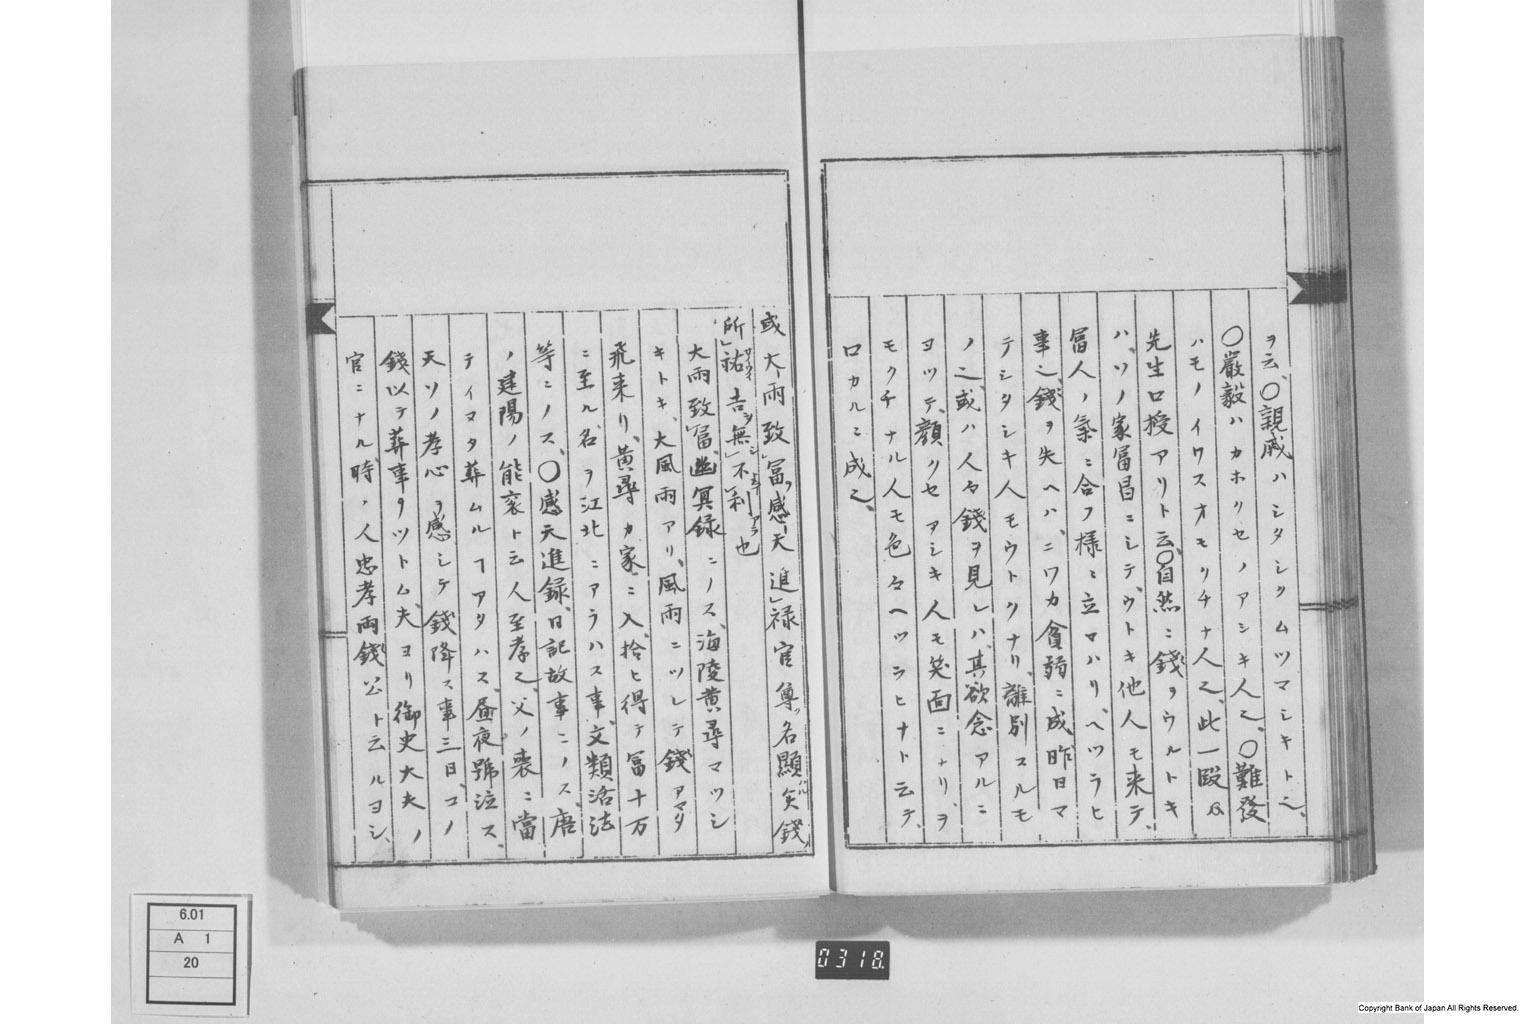 ヲ云、〇親戚ハシタシクムツマシキト之、
〇嚴毅ハカホリセノアシキ人之、〇難發
ハモノイワスオモリチナ人之、此一段ハ
先生口授アリト云、〇自然ニ錢ヲウルトキ
ハ、ソノ家冨昌ニシテ、ウトキ他人モ来テ、
冨人ノ氣ニ合フ様ニ立ロハリ、ヘツラヒ
事之、錢ヲ失ヘハ、ニワカ貧弱ニ成、昨日マ
テシタシキ人モウトクナリ、離別スルモ
ノ之、或ハ人々錢ヲ見レハ、其欲念アルニ
ヨツテ、顔クセアシキ人モ笑面ニナリ、ヲ
モクチナル人モ色々ヘツラヒナト云テ、
口カルニ成之、
或大雨致冨感天進禄官尊名顯矣錢
所祐吉無不利也
大雨致冨、幽冥録ニノス、海陵黄尋マツシ
キトキ、大風雨アリ、風雨ニツレテ錢アマタ
飛来リ、黄尋カ家ニ入、拾ヒ得テ冨十万
ニ至ル、名ヲ江北ニアラハス事、文類活法
等ニノス、〇感天進録、日記故事ニノス、唐
ノ建陽ノ能衮ト云人至孝之、父ノ喪ニ當
テイマタ葬ムルヿアタハス、昼夜號泣ス、
天ソノ孝心ヲ感シテ錢降ス事三日、コノ
錢以テ葬事ヲツトム、夫ヨリ御史大夫ノ
官ニナル、時ノ人忠孝両錢公ト云ルヨシ、
6.01
A 1
20
0318.
Copyright Bank of Japan All Rights Reserved.